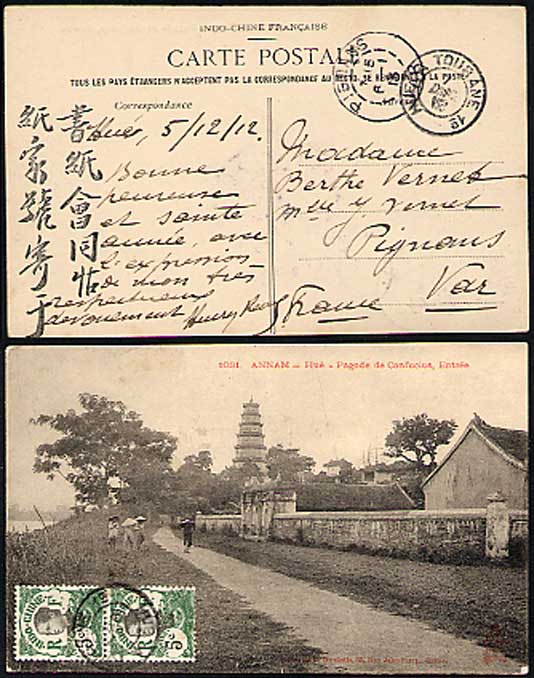 INDO-CHINE FRANÇAISE
CARTE POSTALE
TOUS LES PAYS ÉTRANGERS N'ACCEPTENT PAS LA CORRESPONDANCE AU RECTO, SE LA POSTE
Correspondance
Hué, 5/12/12.
Bonne
heureuse
et sainte
année, avec
l'expression
de mon très
respectueux
dévouement Henry
書紙會同帖
紙家號寄于
PIGNANS
TOURANE
Madame
Berthe Vernet
Pignans
Var
France
1031. ANNAM — Hué - Pagode de Confucius, Entrée
INDO-CHINE
RF
5
INDO-CHINE
RF
5